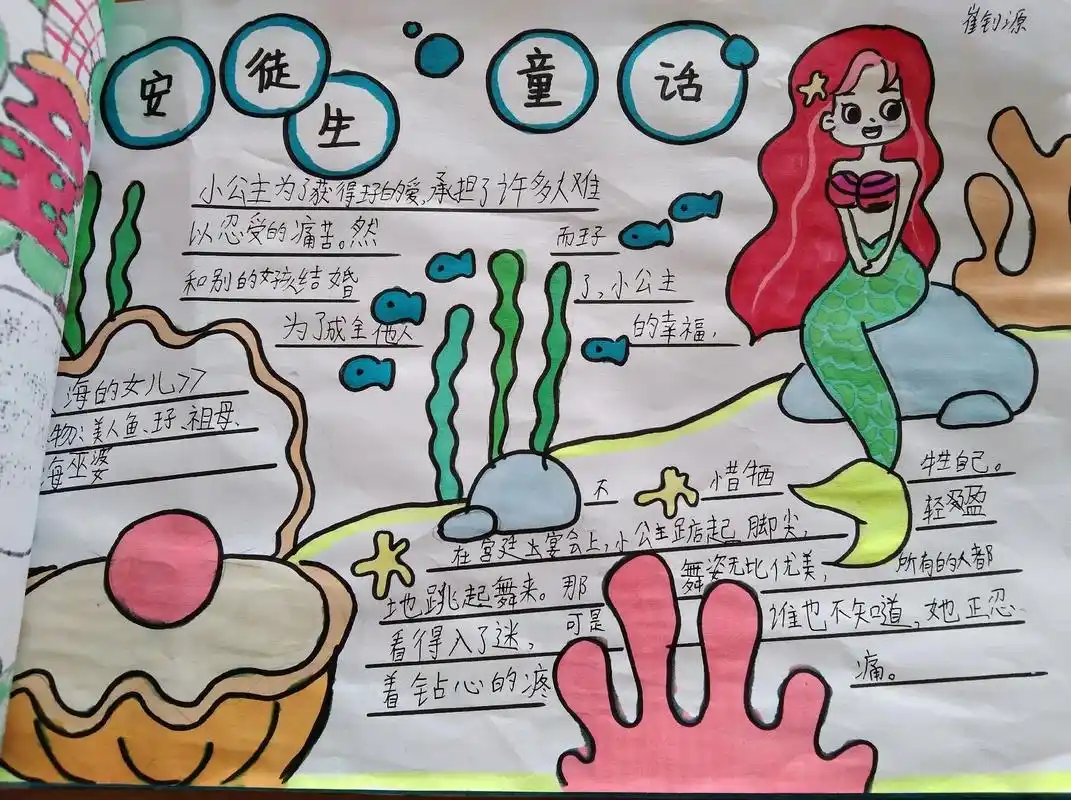 安徒生童话
崔钊源
小公主为了获得王子的爱,承担了许多太难
以忍受的痛苦。然 而王子
和别的女孩结婚 了,小公主
为了成全他人 的幸福,
不 惜牺 牲自己。
海的女儿>>
物:美人鱼、王子、祖母、
海巫婆
在宫廷大宴会上,小公主踮起脚尖, 轻盈
地跳起舞来。那 舞姿无比优美, 所有的人都
看得入了迷, 可是 谁也不知道,她正忍
着钻心的疼 痛。